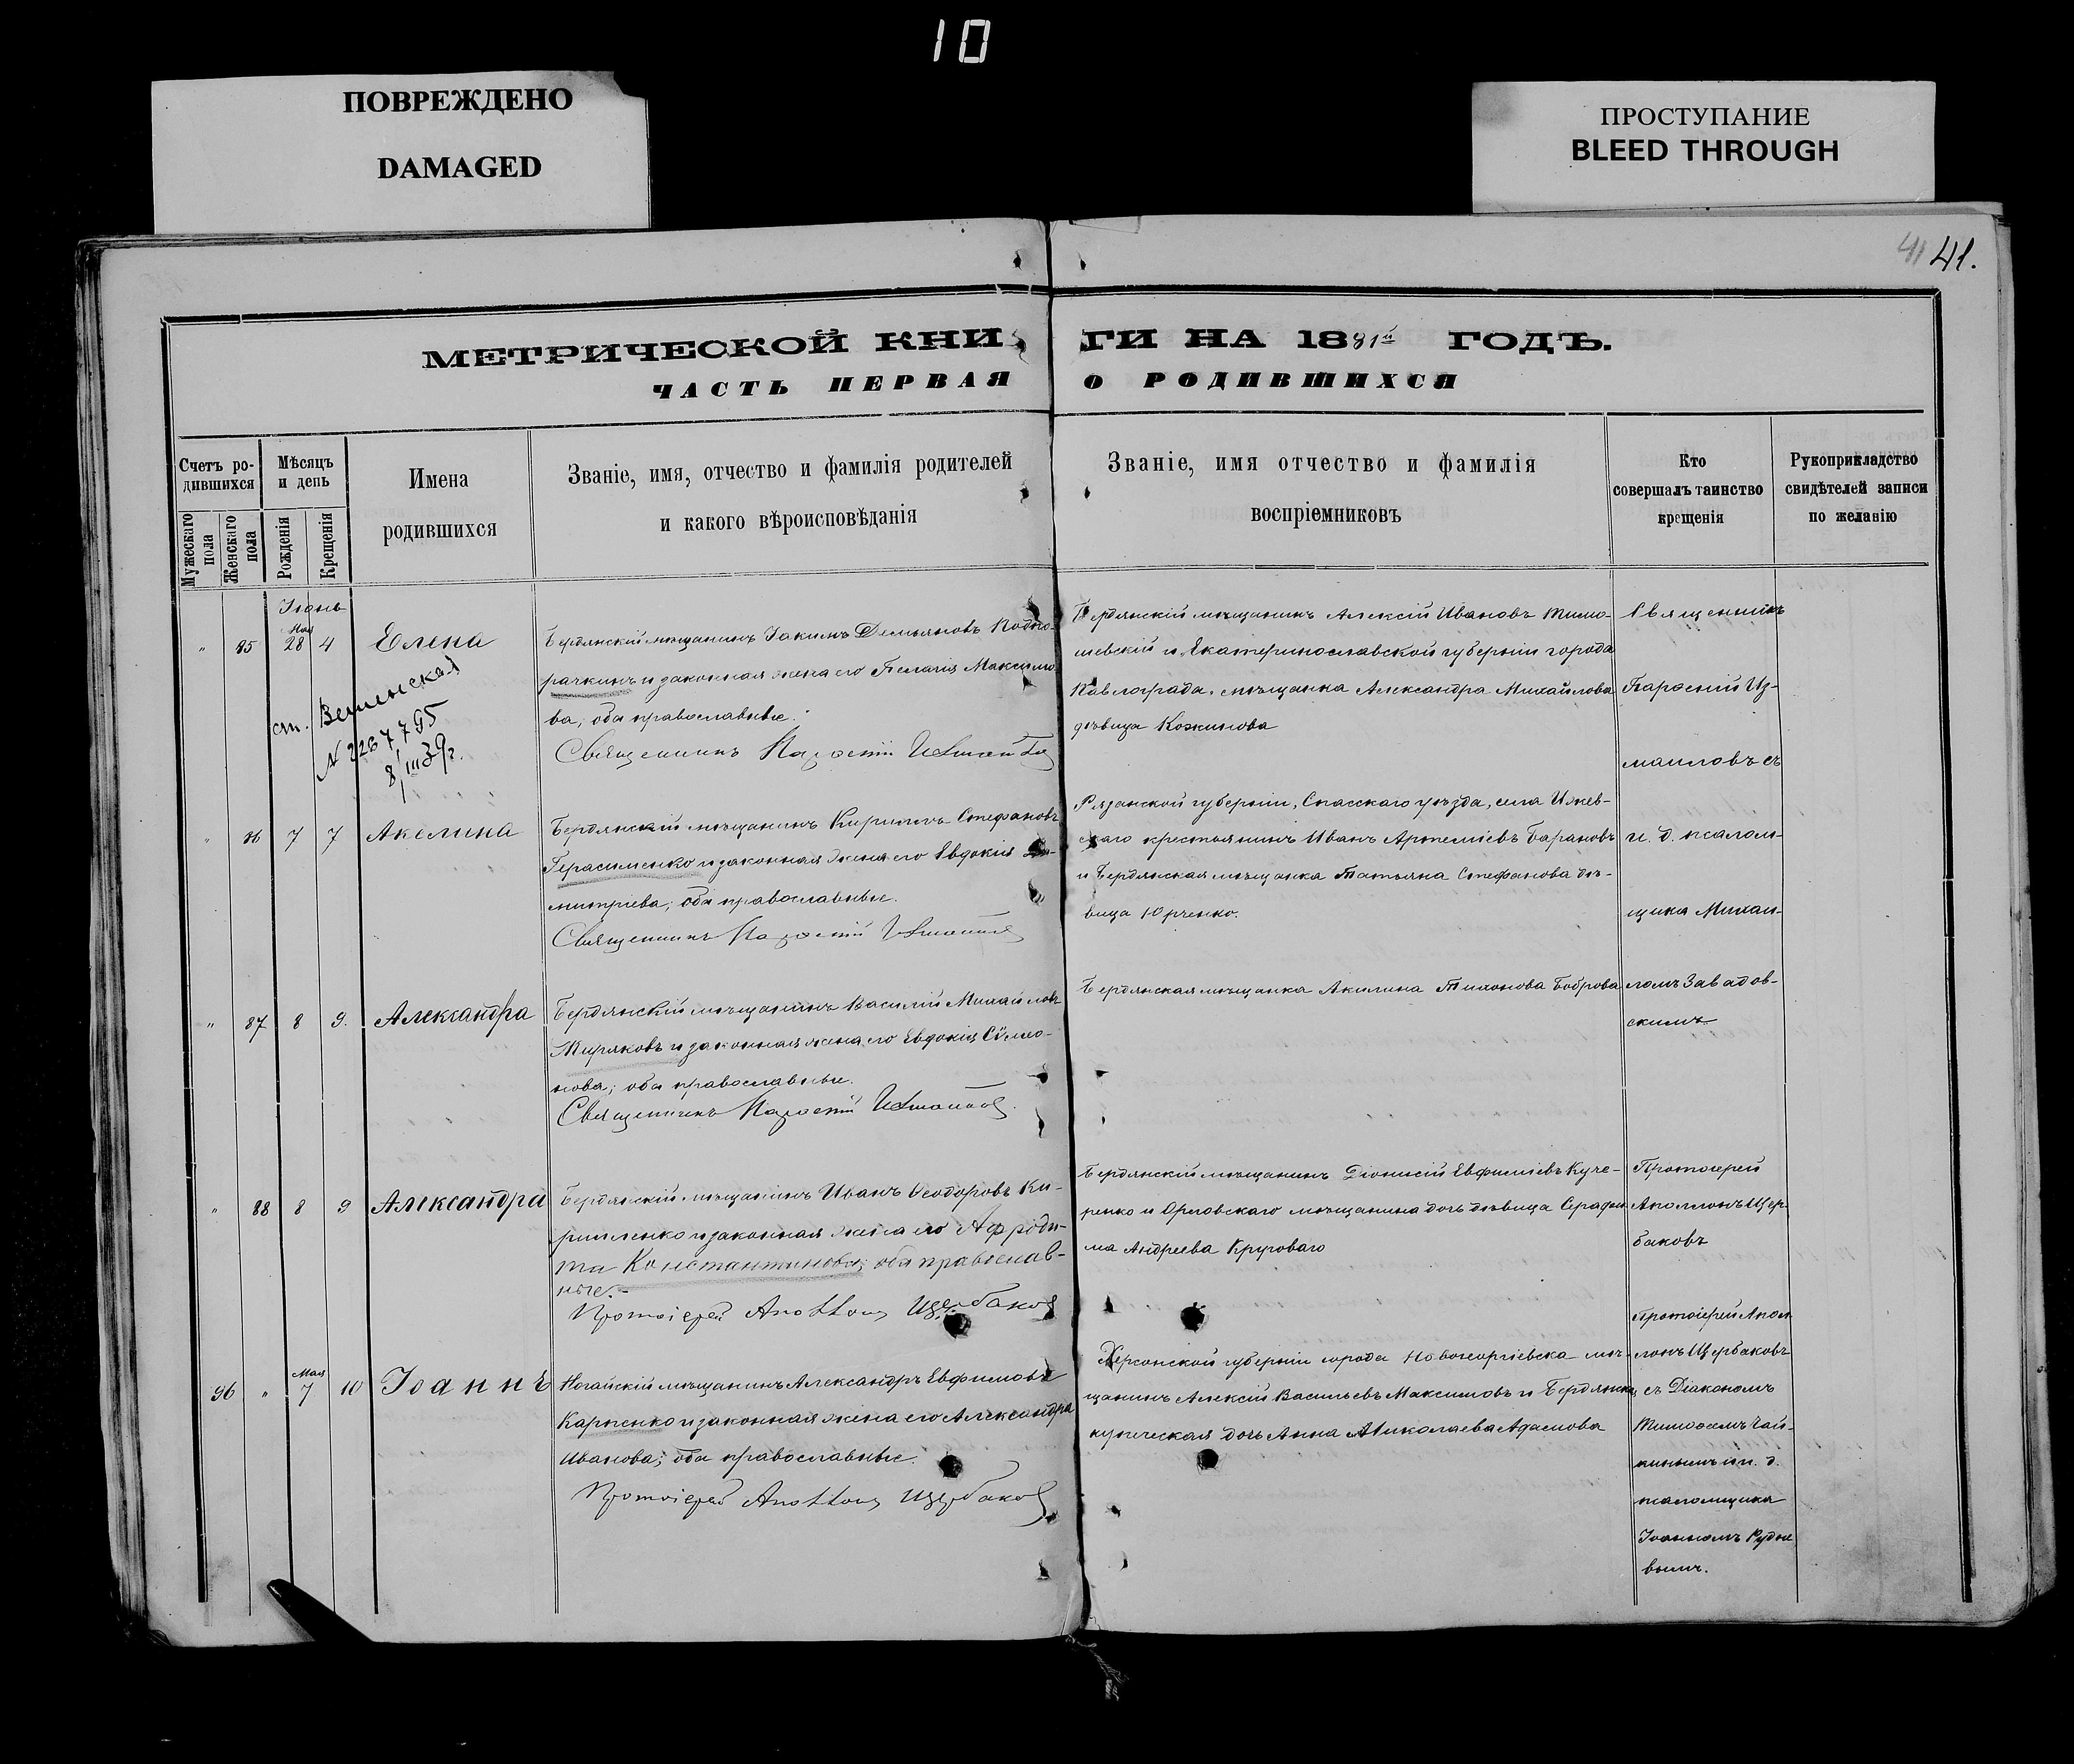 10
ПОВРЕЖДЕНО
DAMAGED
ПРОСТУПАНИЕ
BLEED THROUGH
41 41.
МЕТРИЧЕСКОЙ КНИГИ НА 1881й ГОДЪ.
ЧАСТЬ ПЕРВАЯ О РОДИВШИХСЯ
Счетъ ро-
дившихся
Мужескаго пола
Женскаго пола
Мѣсяцъ
и день
Рожденія
Крещенія
Имена
родившихся
Званіе, имя, отчество и фамилія родителей
и какого вѣроисповѣданія
Званіе, имя отчество и фамилія
воспріемниковъ
Кто
совершалъ таинство
крещенія
Рукоприкладство
свидѣтелей записи
по желанію
Іюнь
Мая
" 85 28 4 Елена
Бердянскій мѣщанинъ Іакимъ Демьяновъ
рачкинъ и законная жена его Пелагія Максимо-
ва, оба православные.
Священникъ
ст. Вешенская
8/III 39г.
Бердянскій мѣщанинъ Алексій Ивановъ Тимо-
шевскій и Екатеринославской губерніи города
Павлограда, мѣщанка Александра Михайлова
дѣвица Кожинова
Священникъ
маиловъ съ
" 86 7 7 Акелина
Бердянскій мѣщанинъ Кириллъ Стефановъ
Герасименко и законная жена его Евдокія Ди-
митріева, оба православные.
Священникъ
Рязанской губерніи, Спасскаго уѣзда, села Ижев-
скаго крестьянинъ Иванъ Артеміевъ Барановъ
и Бердянская мѣщанка Татьяна Стефанова дѣ-
вица Юрченко.
и. д. псалом-
щика Михаи-
" 87 8 9. Александра
Бердянскій мѣщанинъ Василій Михайловъ
Миряковъ и законная жена его Евдокія Сѵмео-
нова; оба православные.
Священникъ
Бердянская мѣщанка Акилина Тихонова Боброва
ломъ Завадов-
скимъ.
" 88 8 9 Александра
Бердянскій мѣщанинъ Иванъ Ѳеодоровъ Ки-
риленко и законная жена его Афроди-
та Константинова; оба православ-
ные.-
Протоіерей Аполлонъ Щербаковъ
Бердянскій мѣщанинъ Діонисій Евфиміевъ Куче-
ренко и Орѣховскаго мѣщанина дочь дѣвица Серафи-
ма Андреева Круговаго
Протоіерей
Аполлонъ Щер-
баковъ
Мая
96 " 7 10 Іоаннъ
Ногайскій мѣщанинъ Александръ Евфимовъ
Карпенко и законная жена его Александра
Иванова; оба православные.
Протоіерей Аполлонъ Щербаковъ
Херсонской губерніи города Новогеоргіевска мѣ-
щанинъ Алексій Васильевъ Максимовъ и Бердянска
купеческая дочь Анна Николаева Адамова
Протоіерей Апол-
лонъ Щербаковъ
съ Діакономъ
Тимоѳеемъ Чай-
кинымъ и и. д.
псаломщика
Іоанномъ Рудне
вымъ.